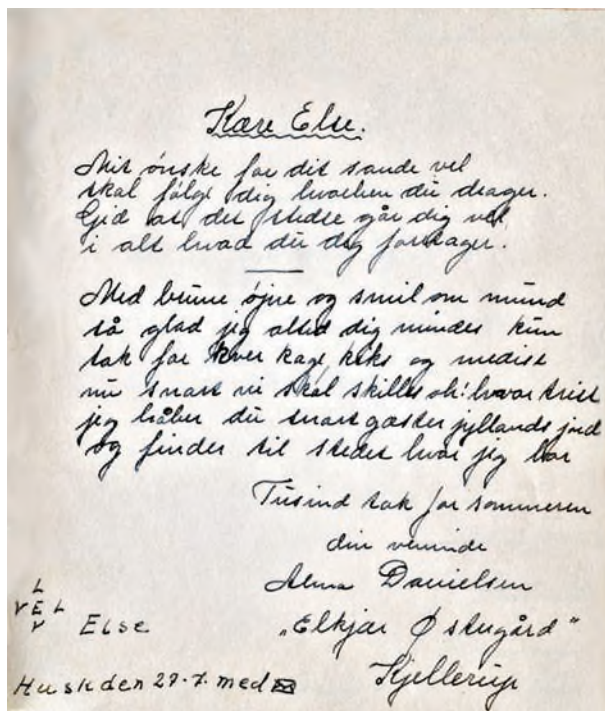 Kære Else.
Mit ønske for dit sande vel
skal følge dig hvorhen du drager.
Gid at det stedse går dig vel
i alt hvad du dig foretager.
Med brune øjne og smil om mund
så glad jeg altid dig mindes kun
tak for hver kage, kiks og medist
nu snart vi skal skilles oh! hvor trist
jeg håber du snart gæster jyllands jord
og finder til stedet hvor jeg bor
Tusind tak for sommeren
din veninde
Danielsen
"Elkjær Østergård"
Kjellerup
L
VEL
V
Else
Husk den 29.7. med